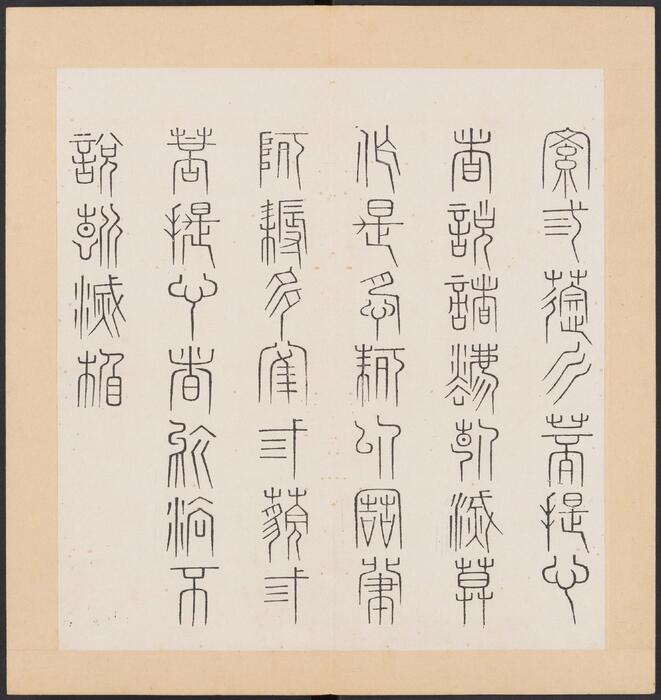 羅三藐三菩提心
者說諸法斷滅莫
作是念何以故發
阿耨多羅三藐三
菩提心者於法不
說斷滅相